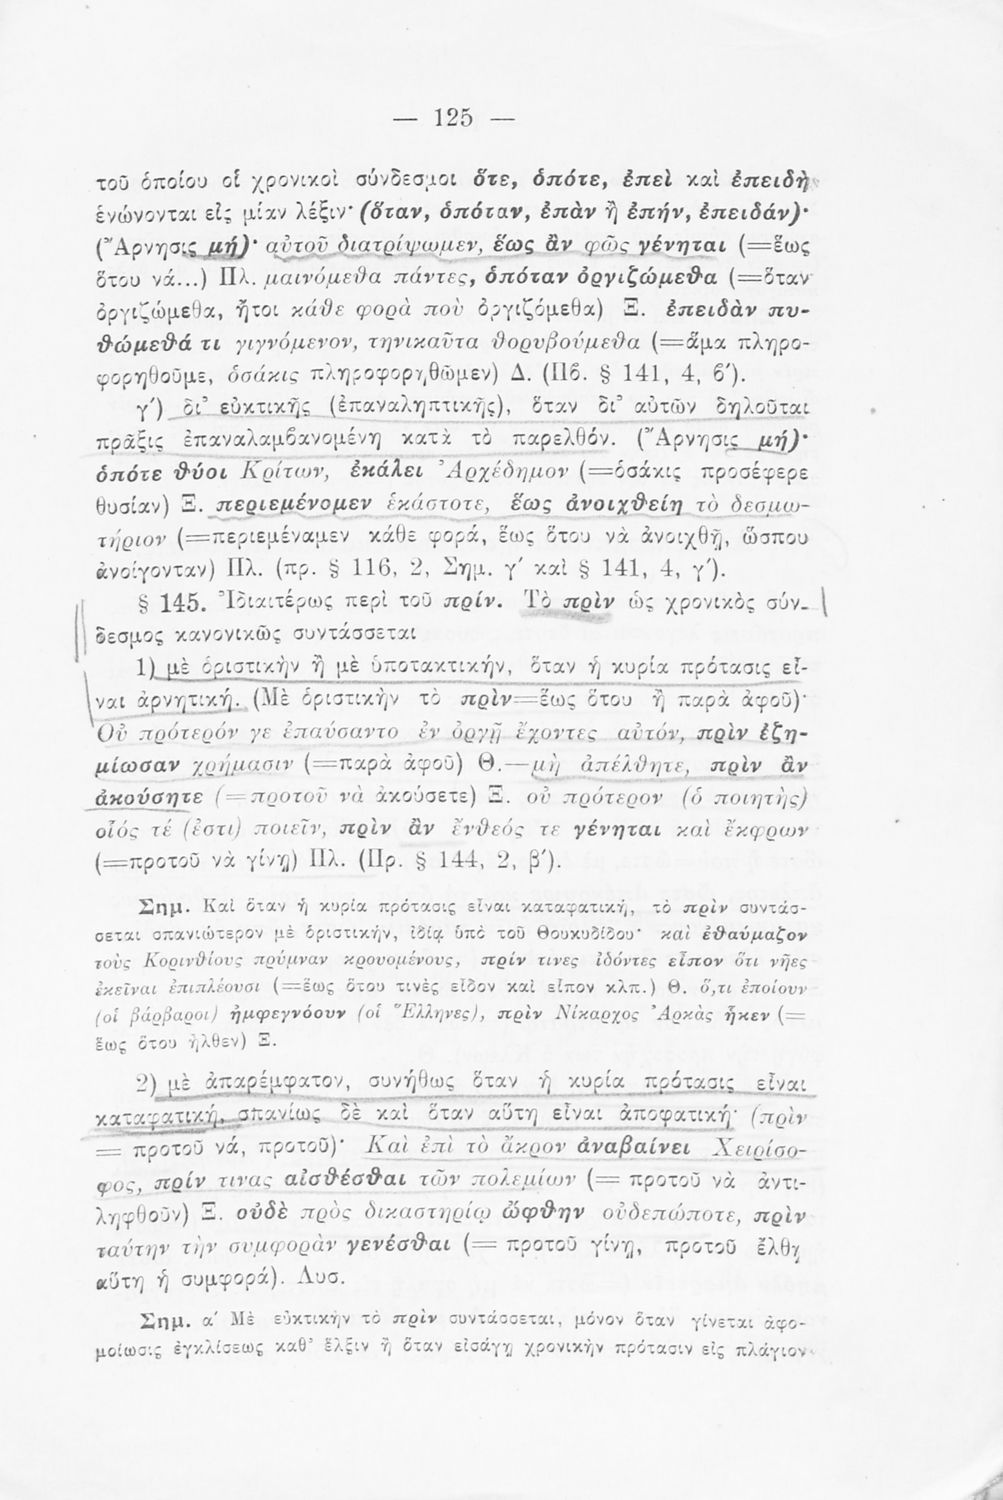 — 125 —
τοῦ ὁποίου οἱ χρονικοὶ σύνδεσμοι ὅτε, ὁπότε, ἐπεὶ καὶ ἐπειδὴ
ἑνώνονται εἰς μίαν λέξιν· (ὅταν, ὁπόταν, ἐπὰν ἢ ἐπήν, ἐπειδάν)·
(Ἄρνησις μή)· αὐτοῦ διατρίψωμεν, ἕως ἂν φῶς γένηται (=ἕως
ὅτου νά...) Πλ. μαινόμεθα πάντες, ὁπόταν ὀργιζώμεθα (=ὅταν
ὀργιζώμεθα, ἤτοι κάθε φορὰ ποὺ ὀργιζόμεθα) Ξ. ἐπειδὰν πυ-
θώμεθά τι γιγνόμενον, τηνικαῦτα θορυβούμεθα (=ἅμα πληρο-
φορηθοῦμε, ὁσάκις πληροφορηθῶμεν) Δ. (Πβ. § 141, 4, β').
γ') δι' εὐκτικῆς (ἐπαναληπτικῆς), ὅταν δι' αὐτῶν δηλοῦται
πρᾶξις ἐπαναλαμβανομένη κατὰ τὸ παρελθόν. (Ἄρνησις μή)·
ὁπότε θύοι Κρίτων, ἐκάλει Ἀρχέδημον (=ὁσάκις προσέφερε
θυσίαν) Ξ. περιεμένομεν ἑκάστοτε, ἕως ἀνοιχθείη τὸ δεσμω-
τήριον (=περιεμέναμεν κάθε φορά, ἕως ὅτου νὰ ἀνοιχθῇ, ὥσπου
ἀνοίγονταν) Πλ. (πρ. § 116, 2, Σημ. γ' καὶ § 141, 4, γ').
§ 145. Ἰδιαιτέρως περὶ τοῦ πρίν. Τὸ πρὶν ὡς χρονικὸς σύν-
δεσμος κανονικῶς συντάσσεται
1) μὲ ὁριστικὴν ἢ μὲ ὑποτακτικήν, ὅταν ἡ κυρία πρότασις εἶ-
ναι ἀρνητική. (Μὲ ὁριστικὴν τὸ πρὶν=ἕως ὅτου ἢ παρὰ ἀφοῦ)·
Οὐ πρότερόν γε ἐπαύσαντο ἐν ὀργῇ ἔχοντες αὐτόν, πρὶν ἐζη-
μίωσαν χρήμασιν (=παρὰ ἀφοῦ) Θ.—μὴ ἀπέλθητε, πρὶν ἂν
ἀκούσητε (=προτοῦ νὰ ἀκούσετε) Ξ. οὐ πρότερον (ὁ ποιητὴς)
οἷός τέ (ἐστι) ποιεῖν, πρὶν ἂν ἔνθεός τε γένηται καὶ ἔκφρων
(=προτοῦ νὰ γίνῃ) Πλ. (Πρ. § 144, 2, β').
Σημ. Καὶ ὅταν ἡ κυρία πρότασις εἶναι καταφατική, τὸ πρὶν συντάσ-
σεται σπανιώτερον μὲ ὁριστικήν, ἰδίᾳ ὑπὸ τοῦ Θουκυδίδου· καὶ ἐθαύμαζον
τοὺς Κορινθίους πρύμναν κρουομένους, πρίν τινες ἰδόντες εἶπον ὅτι νῆες
ἐκεῖναι ἐπιπλέουσι (=ἕως ὅτου τινὲς εἶδον καὶ εἶπον κλπ.) Θ. ὅ,τι ἐποίουν
(οἱ βάρβαροι) ἠμφεγνόουν (οἱ Ἕλληνες), πρὶν Νίκαρχος Ἀρκὰς ἧκεν (=
ἕως ὅτου ἦλθεν) Ξ.
2) μὲ ἀπαρέμφατον, συνήθως ὅταν ἡ κυρία πρότασις εἶναι
καταφατική, σπανίως δὲ καὶ ὅταν αὕτη εἶναι ἀποφατική· (πρὶν
= προτοῦ νά, προτοῦ)· Καὶ ἐπὶ τὸ ἄκρον ἀναβαίνει Χειρίσο-
φος, πρίν τινας αἰσθέσθαι τῶν πολεμίων (= προτοῦ νὰ ἀντι-
ληφθοῦν) Ξ. οὐδὲ πρὸς δικαστηρίῳ ὤφθην οὐδεπώποτε, πρὶν
ταύτην τὴν συμφορὰν γενέσθαι (= προτοῦ γίνῃ, προτοῦ ἔλθῃ
αὕτη ἡ συμφορά). Λυσ.
Σημ. α' Μὲ εὐκτικὴν τὸ πρὶν συντάσσεται, μόνον ὅταν γίνεται ἀφο-
μοίωσις ἐγκλίσεως καθ' ἕλξιν ἢ ὅταν εἰσάγῃ χρονικὴν πρότασιν εἰς πλάγιον